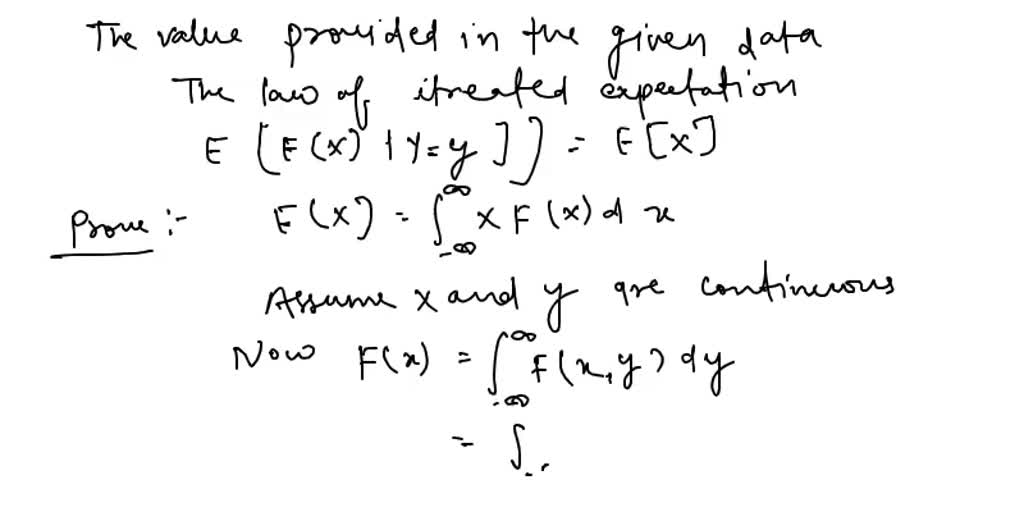 The value provided in the given data
The law of itreated expectation
E [E(x) | Y=y]] = E[x]
Prove :- E(x) = ∫_{-∞}^{∞} x F(x) d x
Assume x and y are continuous
Now F(x) = ∫_{-∞}^{∞} F(x,y) dy
= ∫_{-